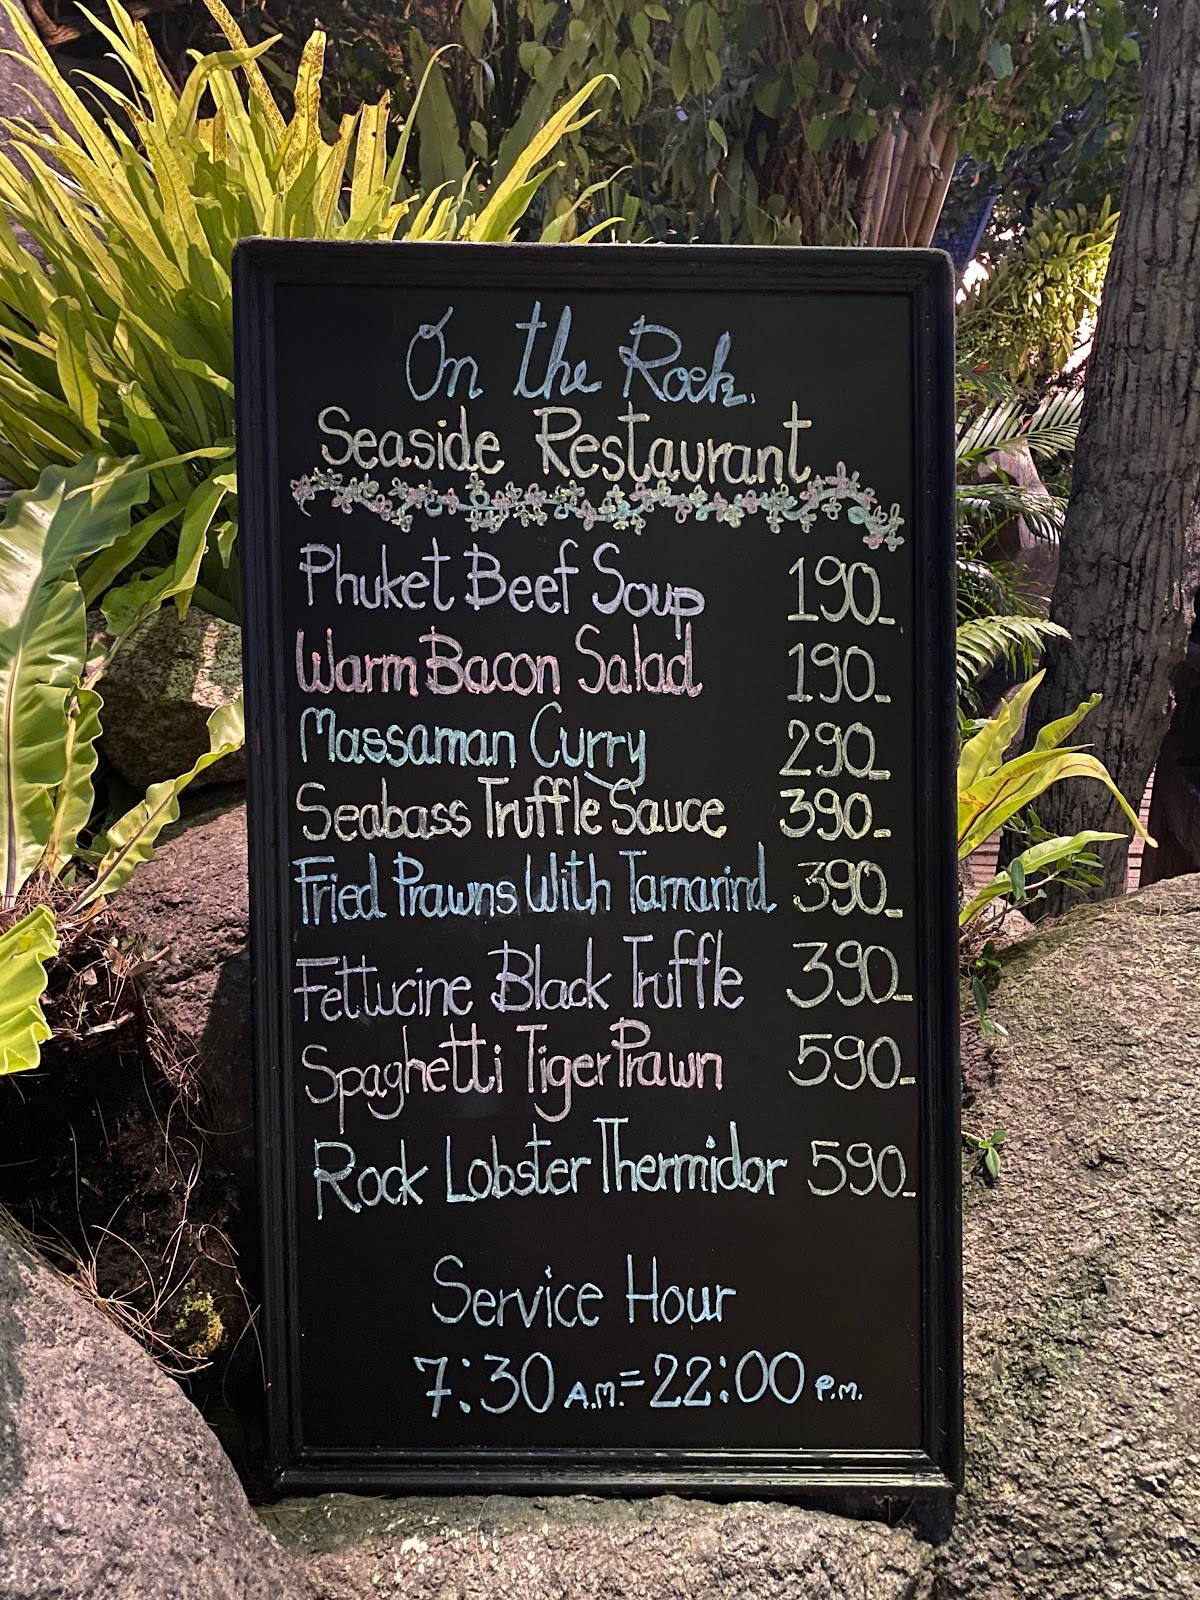 On the Rock.
Seaside Restaurant
Phuket Beef Soup 190.-
Warm Bacon Salad 190.-
Massaman Curry 290.-
Seabass Truffle Sauce 390.-
Fried Prawns With Tamarind 390.-
Fettucine Black Truffle 390.-
Spaghetti Tiger Prawn 590.-
Rock Lobster Thermidor 590.-
Service Hour
7:30 A.M. = 22:00 P.M.